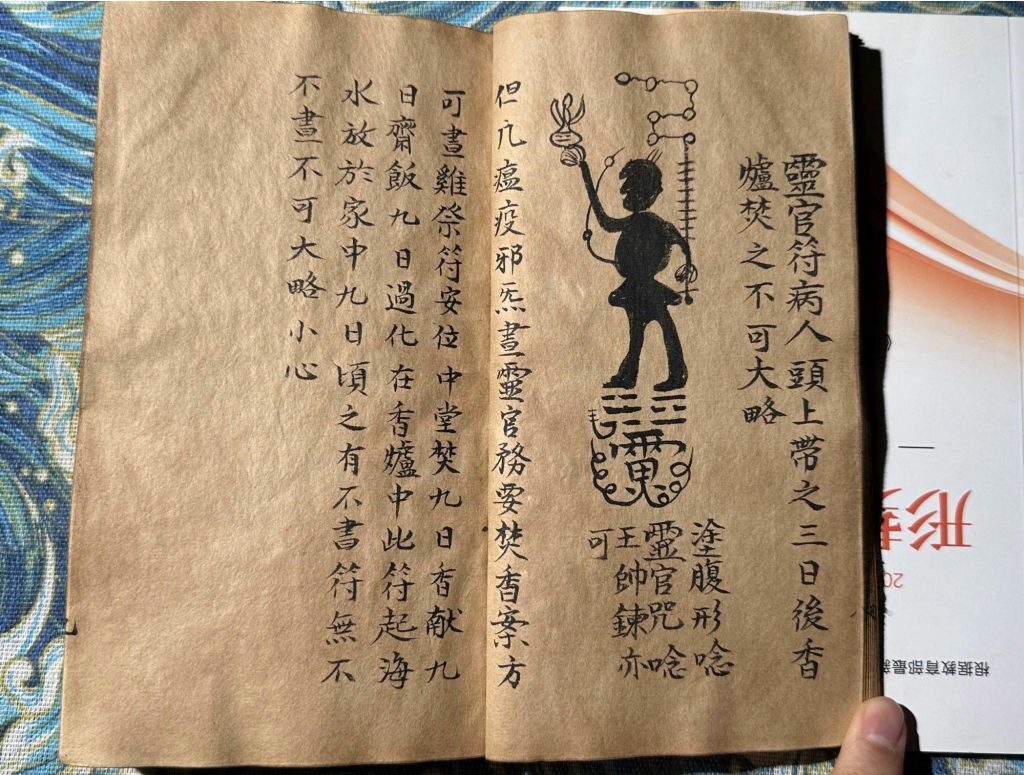 靈官符病人頭上帶之三日後香
爐焚之不可大略
塗腹形唸
靈官咒唸
王帥鍊亦
可
但凢瘟疫邪炁晝靈官務要焚香案方
可晝雞祭符安位中堂焚九日香献九
日齋飯九日過化在香爐中此符起海
水放於家中九日頃之有不書符無不
不晝不可大略小心
形
20
根据教育部最新